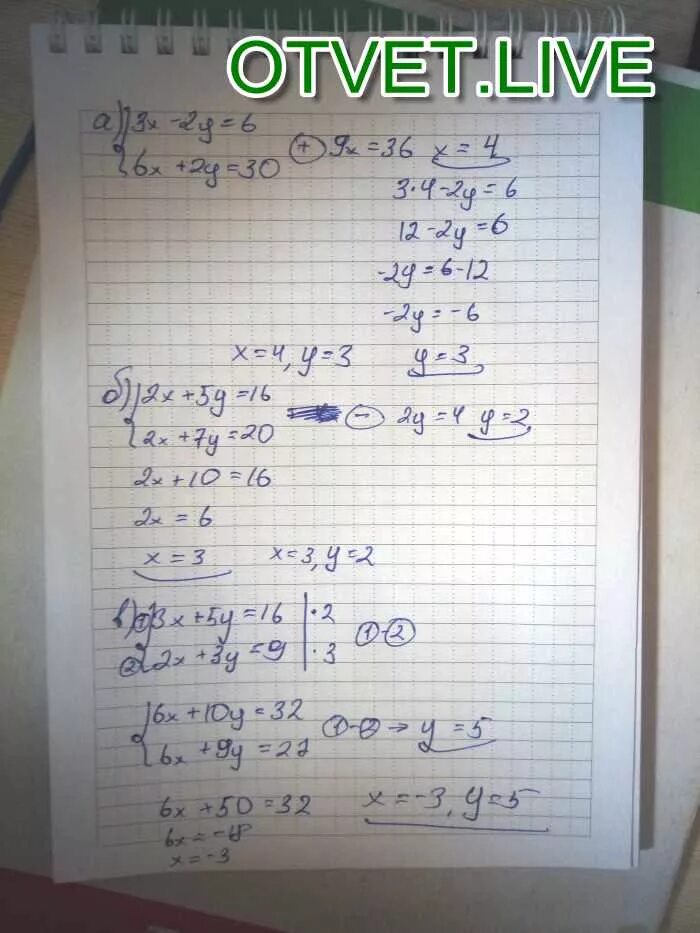 OTVET.LIVE
а) { 3x - 2y = 6
6x + 2y = 30
(+) 9x = 36 x = 4
3·4 - 2y = 6
12 - 2y = 6
-2y = 6-12
-2y = -6
y = 3
x = 4, y = 3
б) { 2x + 5y = 16
2x + 7y = 20
(-) 2y = 4 y = 2
2x + 10 = 16
2x = 6
x = 3 x = 3, y = 2
в) { ① 3x + 5y = 16 | ·2
② 2x + 3y = 9 | ·3
①-②
{ 6x + 10y = 32
6x + 9y = 27
①-② → y = 5
6x + 50 = 32
6x = -18
x = -3
x = -3, y = 5